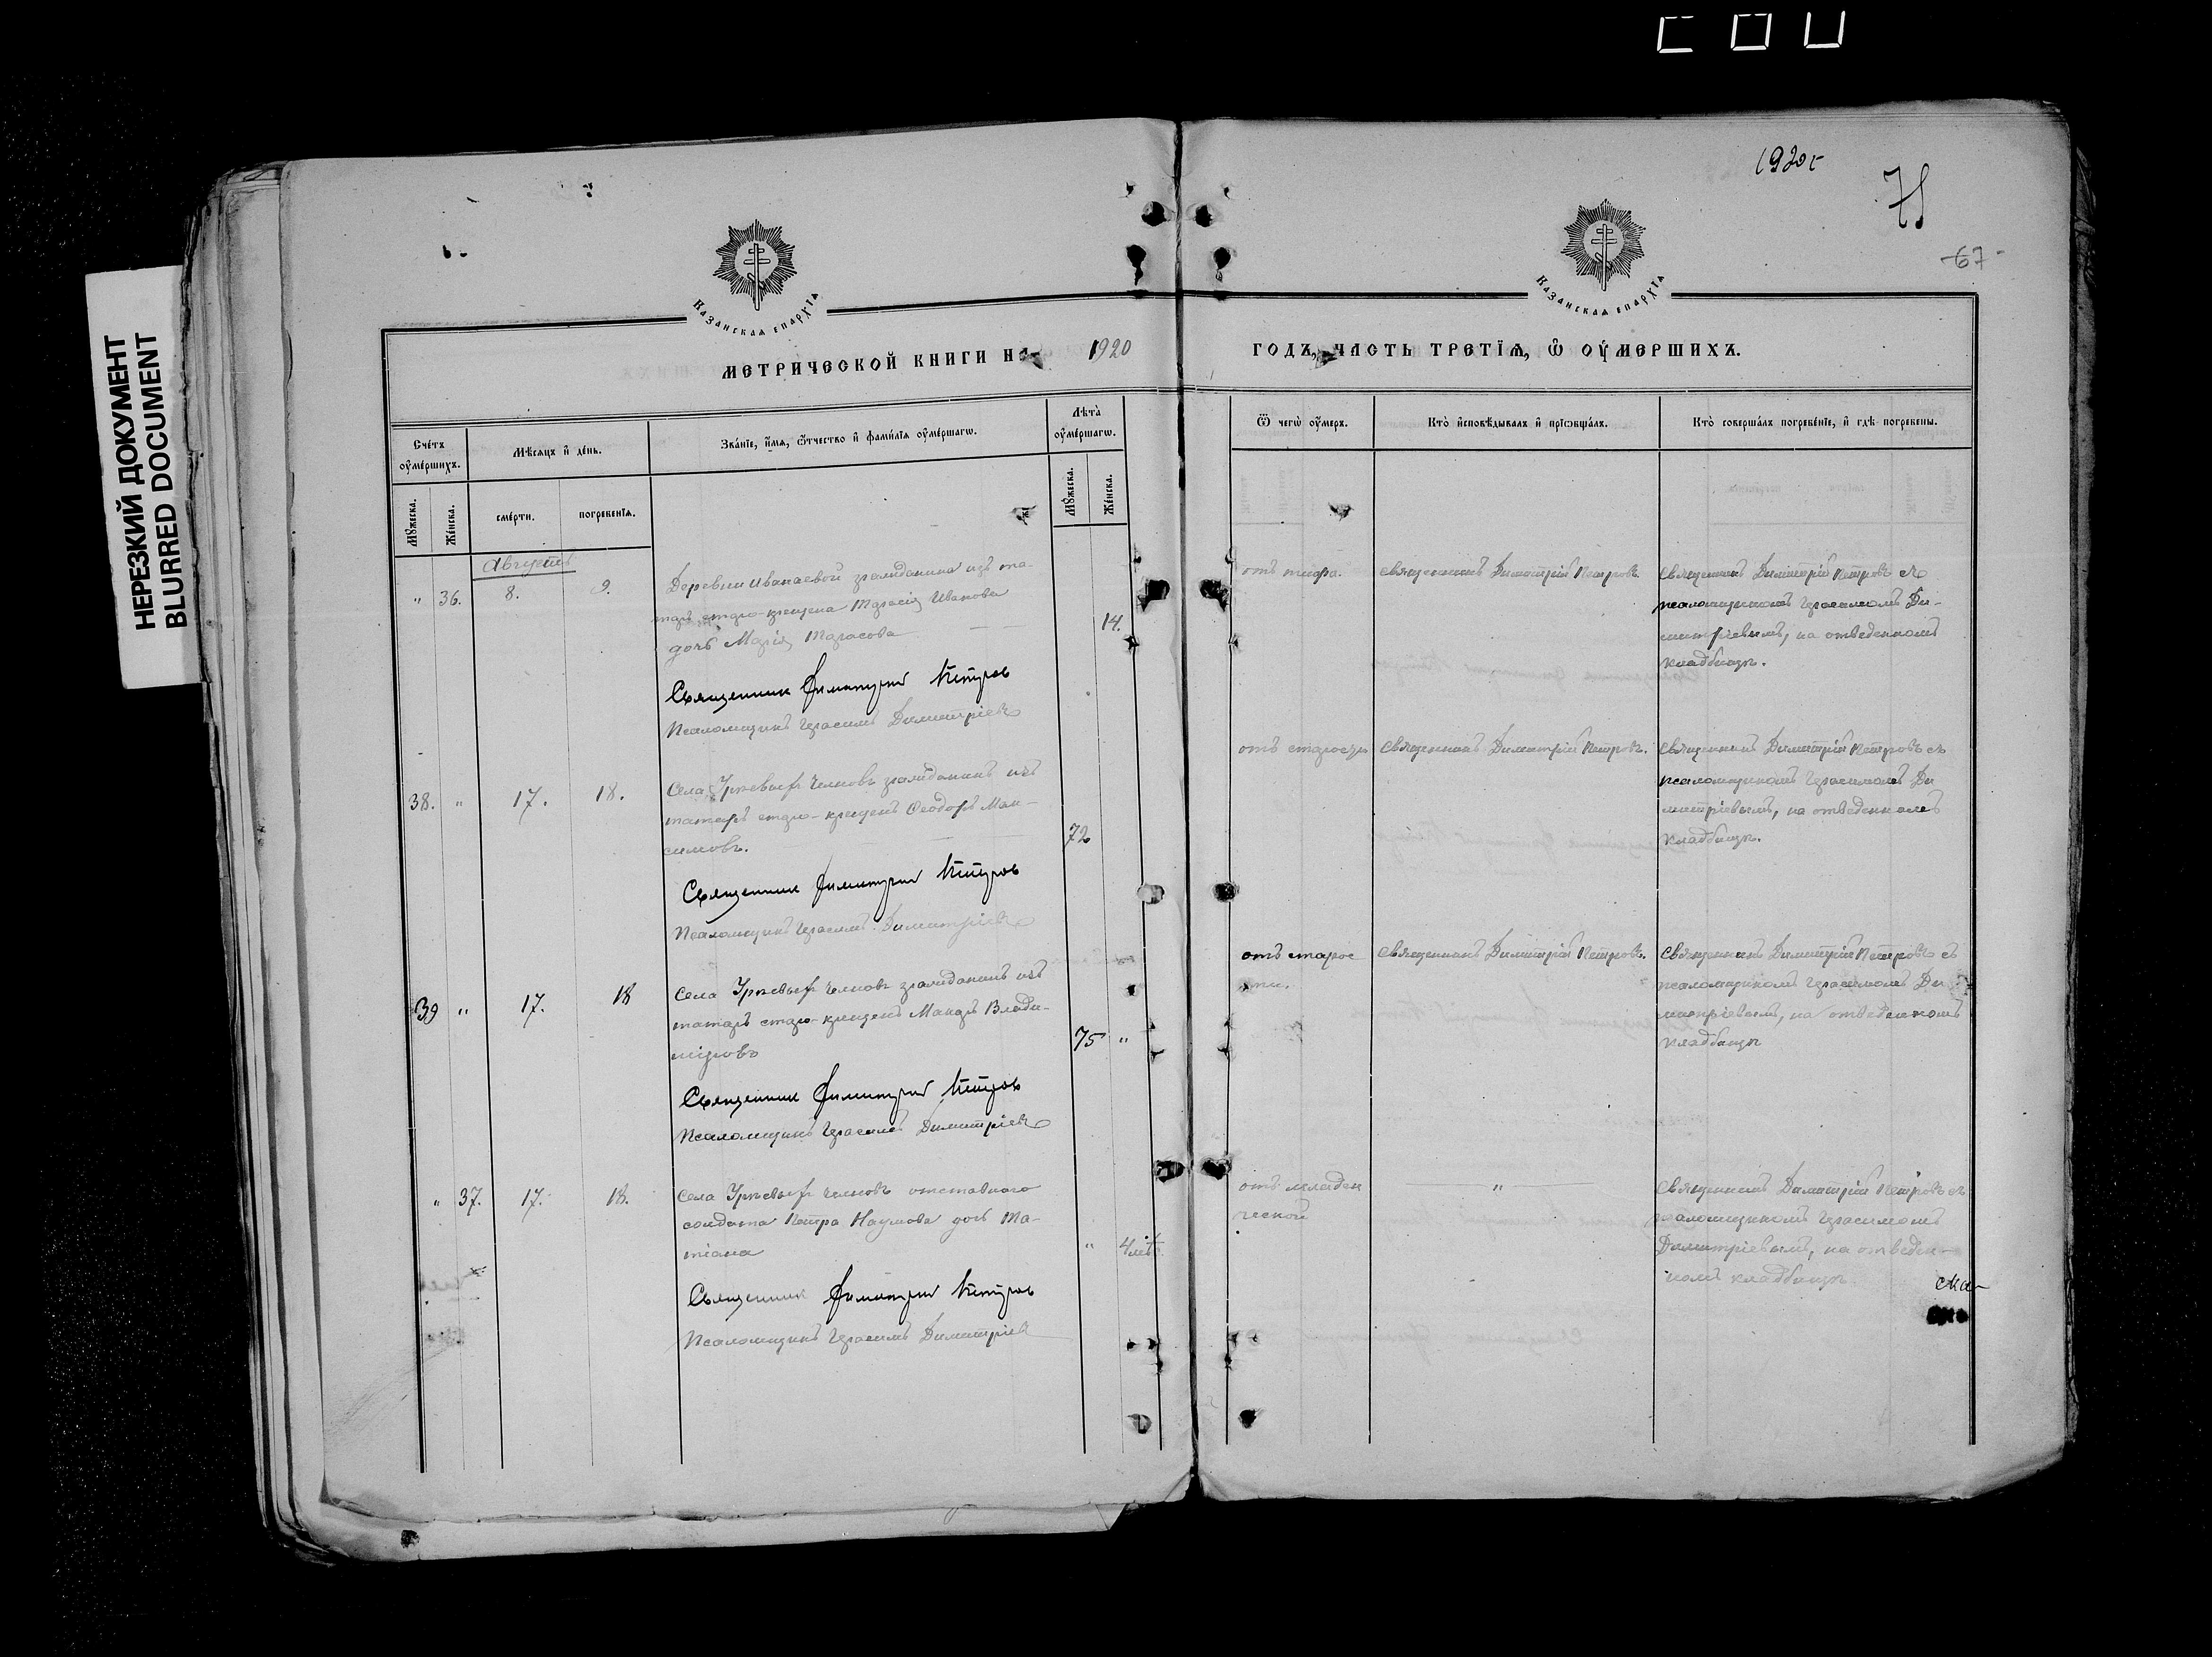 НЕРЕЗКИЙ ДОКУМЕНТ
BLURRED DOCUMENT
1920 г
67
КАЗАНСКАѦ ЕПАРХЇѦ
КАЗАНСКАѦ ЕПАРХЇѦ
МЕТРИЧЕСКОЙ КНИГИ НА 1920 ГОДЪ, ЧАСТЬ ТРЕТЇѦ, Ѡ ОУМЕРШИХЪ.
Счетъ оумершихъ.
Мѣсяцъ и день.
Званїе, имя, ѿчество и фамилїя оумершагѡ.
Лѣта оумершагѡ.
Ѿ чегѡ оумеръ.
Кто исповѣдывалъ и прїѡбщалъ.
Кто совершалъ погребенїе, и гдѣ погребены.
Мꙋжеска.
Женска.
смерти.
погребенїя.
Мꙋжеска.
Женска.
Августъ
" 36. 8. 9.
Деревни Иванаевой гражданина изъ та-
таръ старо-крещена Тарасія Иванова
дочь Марія Тарасова
14.
Священник Димитрий Петров
Псаломщикъ Герасимъ Димитріевъ
отъ тифа.
священникъ Димитрій Петровъ
Священникъ Димитрій Петровъ съ
псаломщикомъ Герасимомъ Ди-
митріевымъ, на отведенномъ
кладбищѣ.
38. " 17. 18.
Села Урѣевыхъ Челновъ гражданинъ изъ
татаръ старо-крещенъ Ѳеодоръ Мак-
симовъ.
72
Священник Димитрий Петров
Псаломщикъ Герасимъ Димитріевъ
отъ старости
Священникъ Димитрій Петровъ.
Священникъ Димитрій Петровъ съ
псаломщикомъ Герасимомъ Ди
митріевымъ, на отведенномъ
кладбищѣ.
39 " 17. 18
Села Урѣевыхъ Челновъ гражданинъ изъ
татаръ старо-крещенъ Макаръ Влади-
міровъ
75 "
Священник Димитрий Петров
Псаломщикъ Герасимъ Димитріевъ
отъ старос
ти.
Священникъ Димитрій Петровъ.
Священникъ Димитрій Петровъ съ
псаломщикомъ Герасимомъ Ди
митріевымъ, на отведенномъ
кладбищѣ
" 37. 17. 18.
Села Урѣевыхъ Челновъ отставного
солдата Петра Наумова дочь Та-
тіана
" 4
Священник Димитрий Петров
Псаломщикъ Герасимъ Димитріевъ
отъ младен
ческой
"
Священникъ Димитрій Петровъ съ
псаломщикомъ Герасимомъ
Димитріевымъ, на отведен-
номъ кладбищѣ